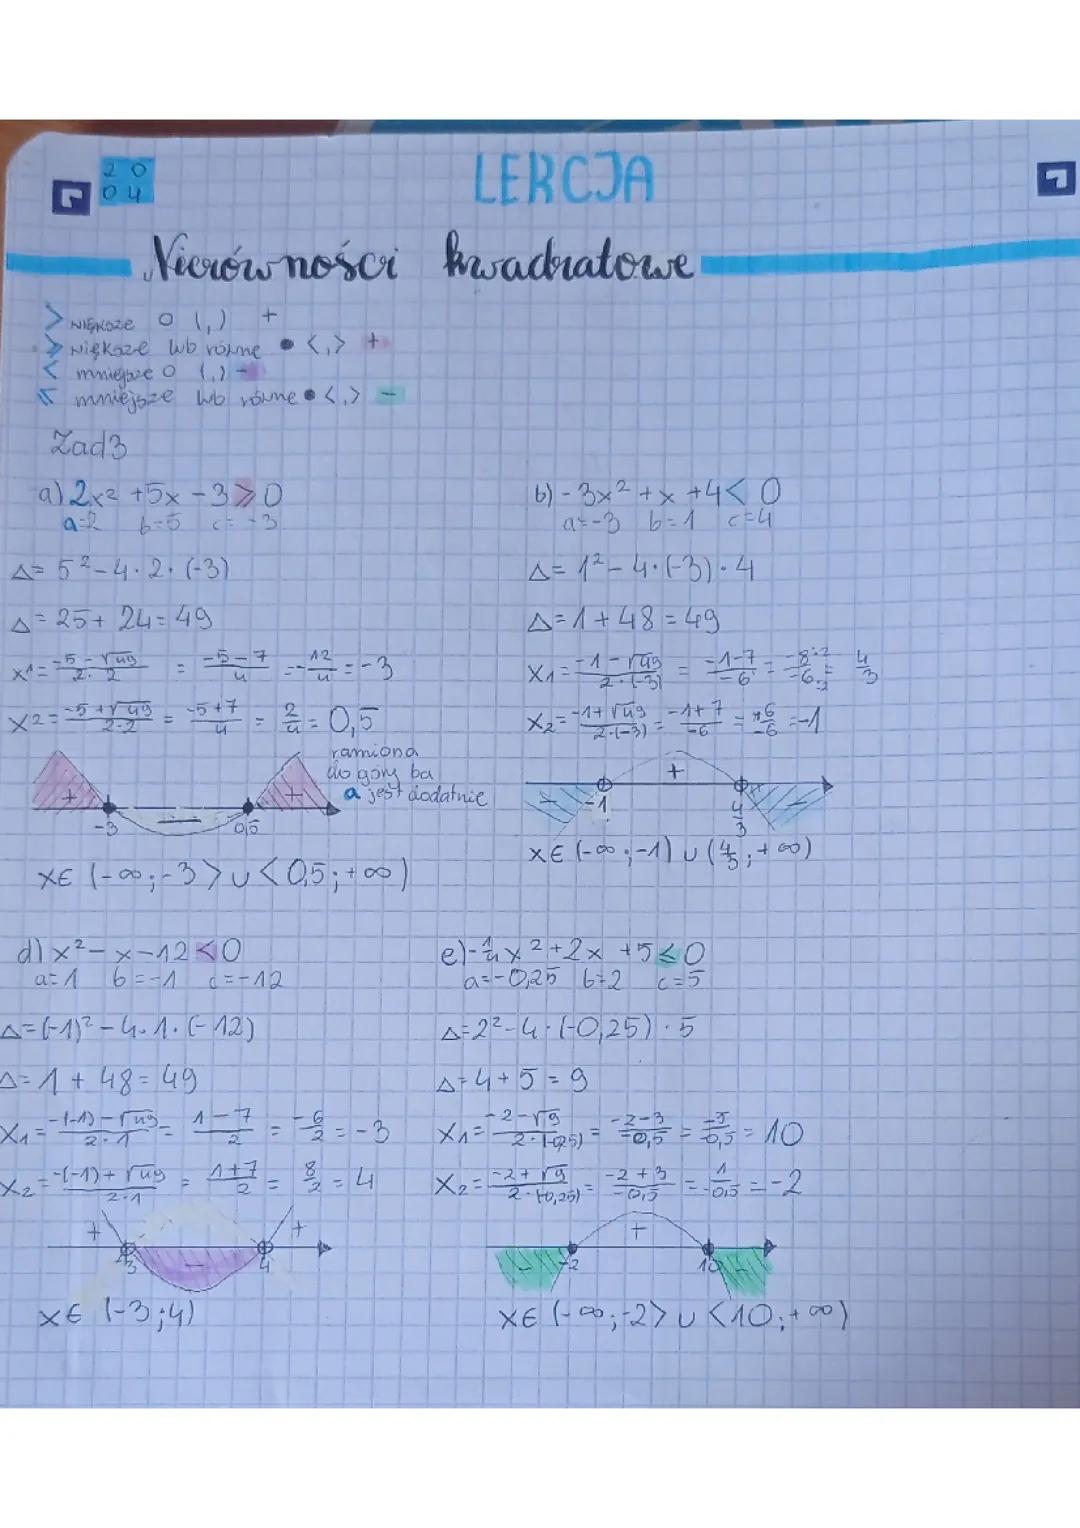 20
04
LEKCJA
Nierówności kwadratowe
> większe o (,) +
⩾ większe lub równe • <,> +
< mniejsze o (,) -
⩽ mniejsze lub równe • <,> -
Zad3
a) 2x² +5x -3 ⩾ 0
a=2 b=5 c= -3
Δ= 5²-4·2·(-3)
Δ= 25+ 24=49
x1= -5-√49/2·2 = -5-7/4 = -12/4 = -3
x2= -5+√49/2·2 = -5+7/4 = 2/4 = 0,5
ramiona
do góry ba
a jest dodatnie
+ - +
-3 0,5
x∈ (-∞;-3> ∪ <0,5;+∞)
b) -3x² +x +4 < 0
a=-3 b=1 c=4
Δ= 1²-4·(-3)·4
Δ=1+48=49
x1= -1-√49/2·(-3) = -1-7/-6 = -8:2/-6:2 = 4/3
x2= -1+√49/2·(-3) = -1+7/-6 = +6/-6 = -1
- + -
-1 4/3
x∈ (-∞;-1) ∪ (4/3;+∞)
d) x²-x-12 < 0
a=1 b=-1 c=-12
Δ=(-1)²-4·1·(-12)
Δ=1+48=49
x1= -(-1)-√49/2·1 = 1-7/2 = -6/2 = -3
x2= -(-1)+√49/2·1 = 1+7/2 = 8/2 = 4
+ - +
-3 4
x∈ (-3;4)
e) -1/4x²+2x +5 ⩽ 0
a=-0,25 b=2 c=5
Δ=2²-4·(-0,25)·5
Δ=4+5=9
x1= -2-√9/2·(-0,25) = -2-3/-0,5 = -5/-0,5 = 10
x2= -2+√9/2·(-0,25) = -2+3/-0,5 = 1/-0,5 = -2
- + -
-2 10
x∈ (-∞;-2> ∪ <10;+∞)